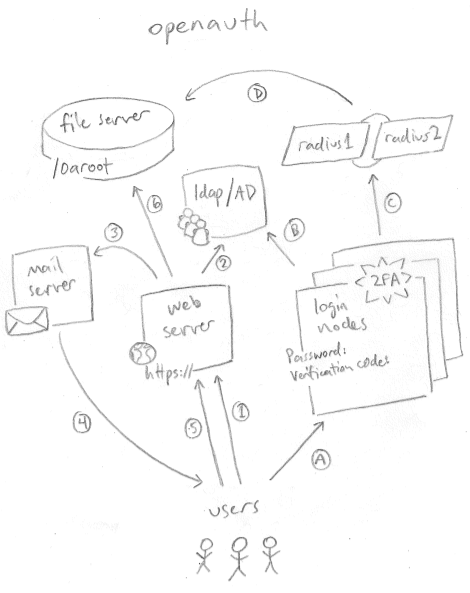 openauth
D
file server
/oaroot
radius1
radius2
ldap/AD
6
B
C
3
2
mail
server
web
server
https://
2FA
login
nodes
Password:
Verification codes
4
5
1
A
users